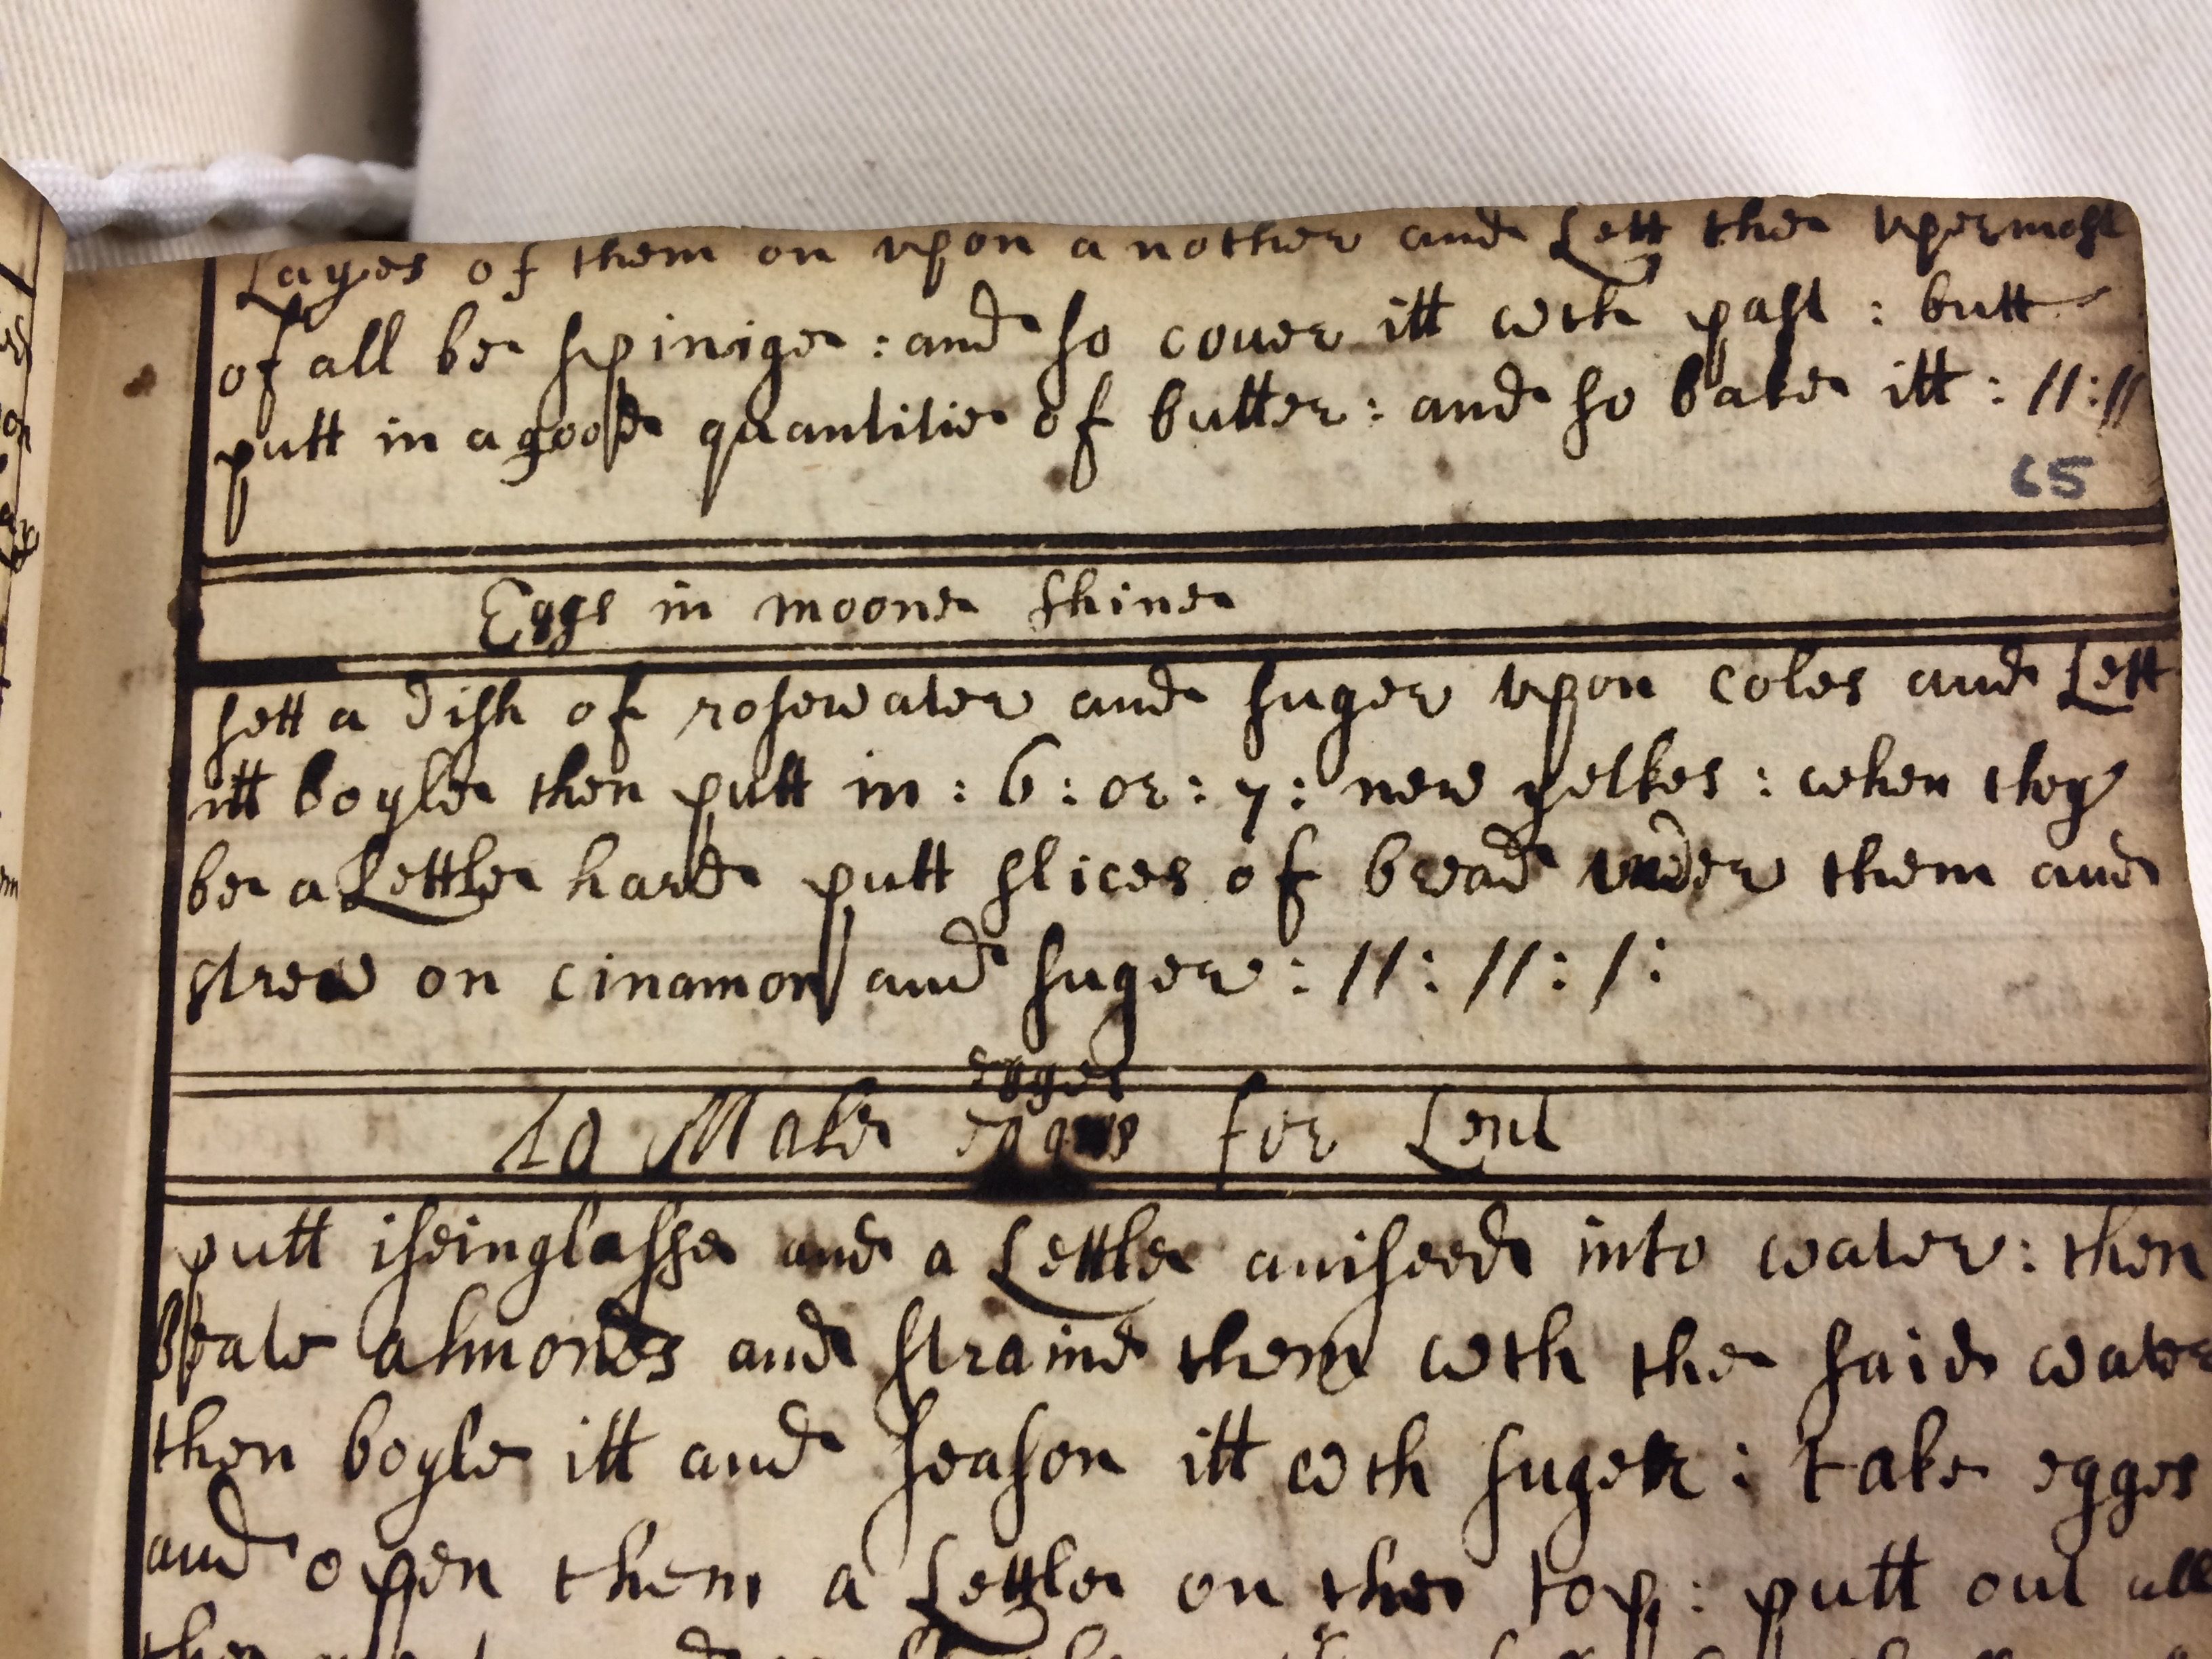 Layes of them on vpon a nother and Lett the vpermost
of all be spinige : and so couer itt wth past : butt
putt in a goode quantitie of butter : and so bake itt : //://
65
Eggs in moone shine
sett a dish of rosewater and suger vpon coles and Lett
itt boyle then putt in : 6 : or : 7 : new yelkes : when they
be a Lettle hard putt slices of bread vnder them and
strew on cinamon and suger : // : // : / :
egges
To Make egges for Lent
putt iseinglasse and a Lettle aniseede into water : then
Beate almonds and straine them wth the said water
then boyle itt and season itt wth suger : take egges
and open them a Lettle on the top : putt out all
the